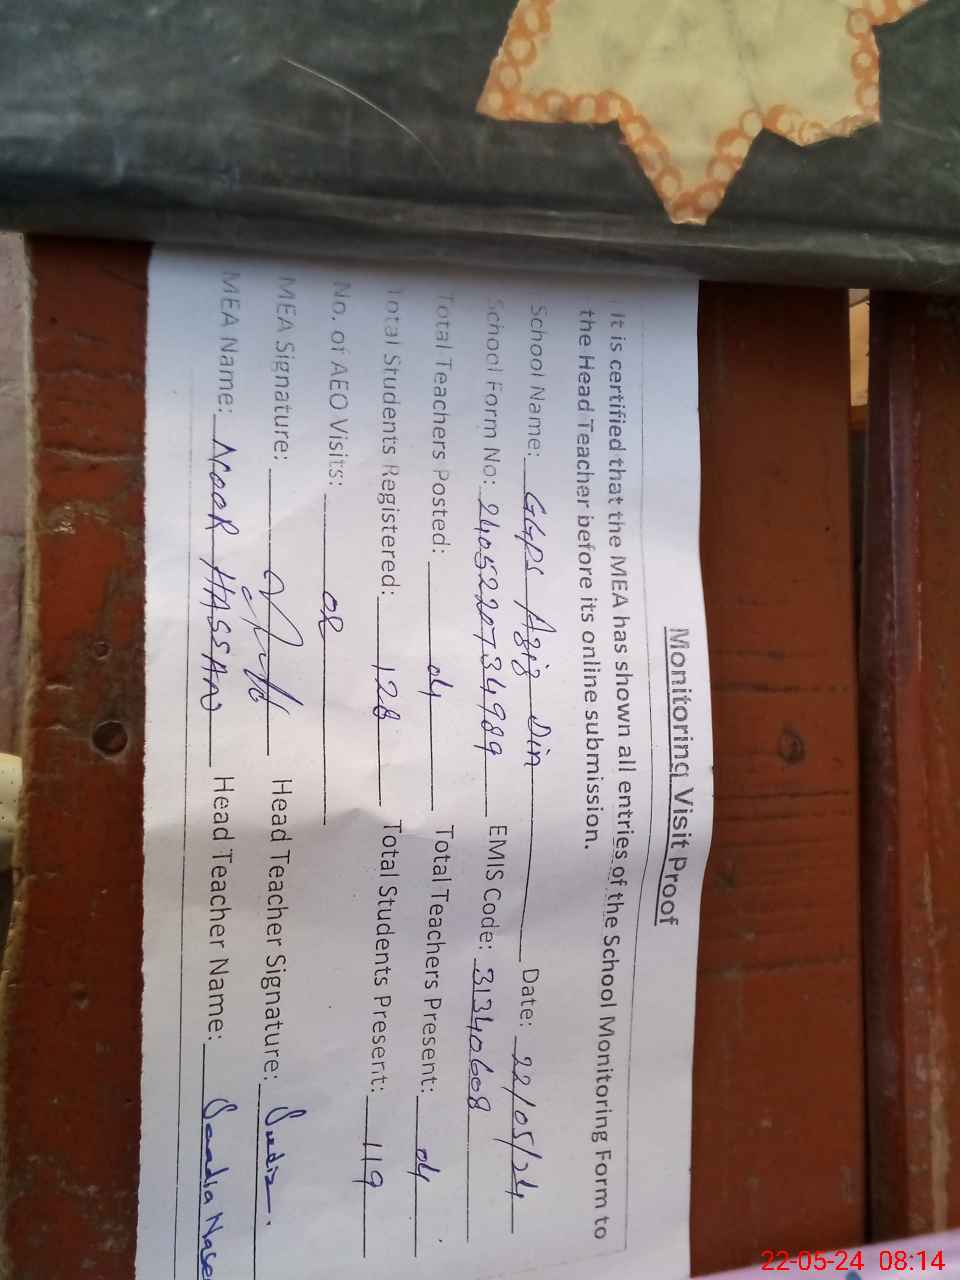 Monitoring Visit Proof
It is certified that the MEA has shown all entries of the School Monitoring Form to
the Head Teacher before its online submission.
School Name: GGPS Aziz Din Date: 22/05/24
School Form No: 2405220734989 EMIS Code: 31340608
Total Teachers Posted: 04 Total Teachers Present: 04
Total Students Registered: 128 Total Students Present: 119
No. of AEO Visits: 02
MEA Signature: Head Teacher Signature: Sadia
MEA Name: NOOR HASSAN Head Teacher Name: Saadia Nase
22-05-24 08:14